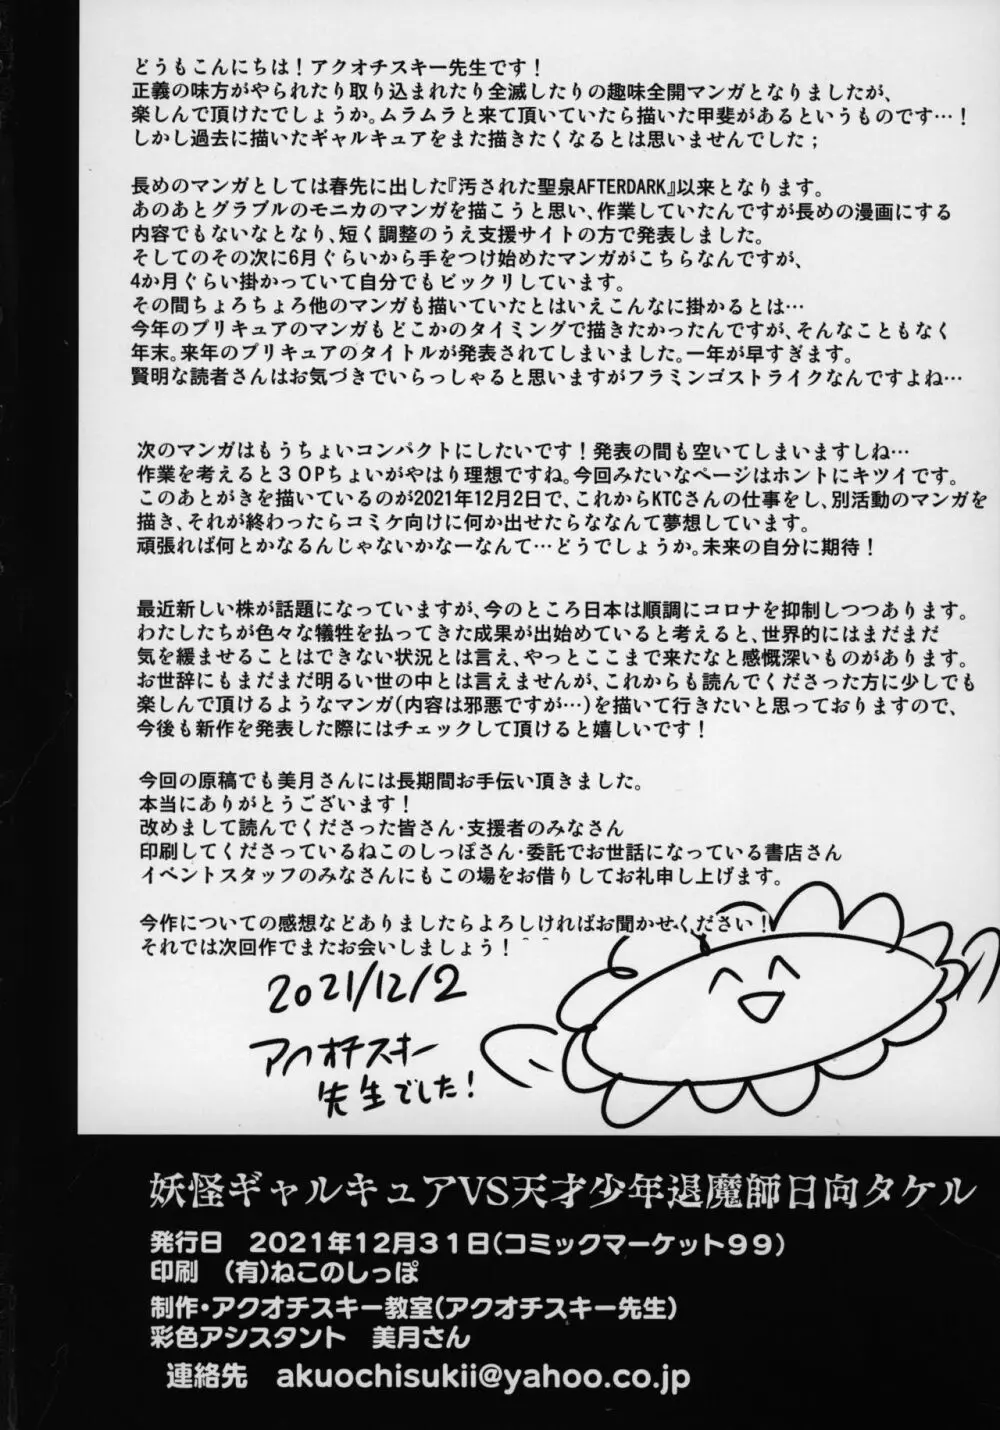 どうもこんにちは！アクオチスキー先生です！
正義の味方がやられたり取り込まれたり全滅したりの趣味全開マンガとなりましたが、
楽しんで頂けたでしょうか。ムラムラと来て頂いていたら描いた甲斐があるというものです…！
しかし過去に描いたギャルキュアをまた描きたくなるとは思いませんでした；
長めのマンガとしては春先に出した『汚された聖泉AFTERDARK』以来となります。
あのあとグラブルのモニカのマンガを描こうと思い、作業していたんですが長めの漫画にする
内容でもないなとなり、短く調整のうえ支援サイトの方で発表しました。
そしてのその次に6月ぐらいから手をつけ始めたマンガがこちらなんですが、
4か月ぐらい掛かっていて自分でもビックリしています。
その間ちょろちょろ他のマンガも描いていたとはいえこんなに掛かるとは…
今年のプリキュアのマンガもどこかのタイミングで描きたかったんですが、そんなこともなく
年末。来年のプリキュアのタイトルが発表されてしまいました。一年が早すぎます。
賢明な読者さんはお気づきでいらっしゃると思いますがフラミンゴストライクなんですよね…
次のマンガはもうちょいコンパクトにしたいです！発表の間も空いてしまいますしね…
作業を考えると３０Pちょいがやはり理想ですね。今回みたいなページはホントにキツイです。
このあとがきを描いているのが2021年12月2日で、これからKTCさんの仕事をし、別活動のマンガを
描き、それが終わったらコミケ向けに何か出せたらななんて夢想しています。
頑張れば何とかなるんじゃないかなーなんて…どうでしょうか。未来の自分に期待！
最近新しい株が話題になっていますが、今のところ日本は順調にコロナを抑制しつつあります。
わたしたちが色々な犠牲を払ってきた成果が出始めていると考えると、世界的にはまだまだ
気を緩ませることはできない状況とは言え、やっとここまで来たなと感慨深いものがあります。
お世辞にもまだまだ明るい世の中とは言えませんが、これからも読んでくださった方に少しでも
楽しんで頂けるようなマンガ(内容は邪悪ですが…)を描いて行きたいと思っておりますので、
今後も新作を発表した際にはチェックして頂けると嬉しいです！
今回の原稿でも美月さんには長期間お手伝い頂きました。
本当にありがとうございます！
改めまして読んでくださった皆さん・支援者のみなさん
印刷してくださっているねこのしっぽさん・委託でお世話になっている書店さん
イベントスタッフのみなさんにもこの場をお借りしてお礼申し上げます。
今作についての感想などありましたらよろしければお聞かせください！
それでは次回作でまたお会いしましょう！
2021/12/2
アクオチスキー
先生でした！
妖怪ギャルキュアVS天才少年退魔師日向タケル
発行日　2021年12月31日(コミックマーケット99)
印刷　(有)ねこのしっぽ
制作・アクオチスキー教室(アクオチスキー先生)
彩色アシスタント　美月さん
連絡先　akuochisukii@yahoo.co.jp